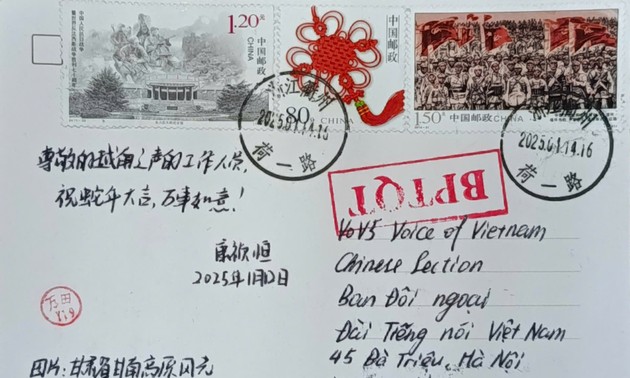 1.20元
中国邮政
CHINA
80
中国邮政
CHINA
1.50元
中国邮政CHINA
2025.01.14.16
荷一路
2025.01.14.16
荷一路
BPTQT
尊敬的越南之声的工作人员,
祝蛇年大吉,万事如意!
康锁恒
2025年1月12日
VOV5 Voice of Vietnam
Chinese Section
Ban Đối ngoại
Đài Tiếng nói Việt Nam
45 Bà Triệu, Hà Nội
图片:甘肃省甘南高原风光